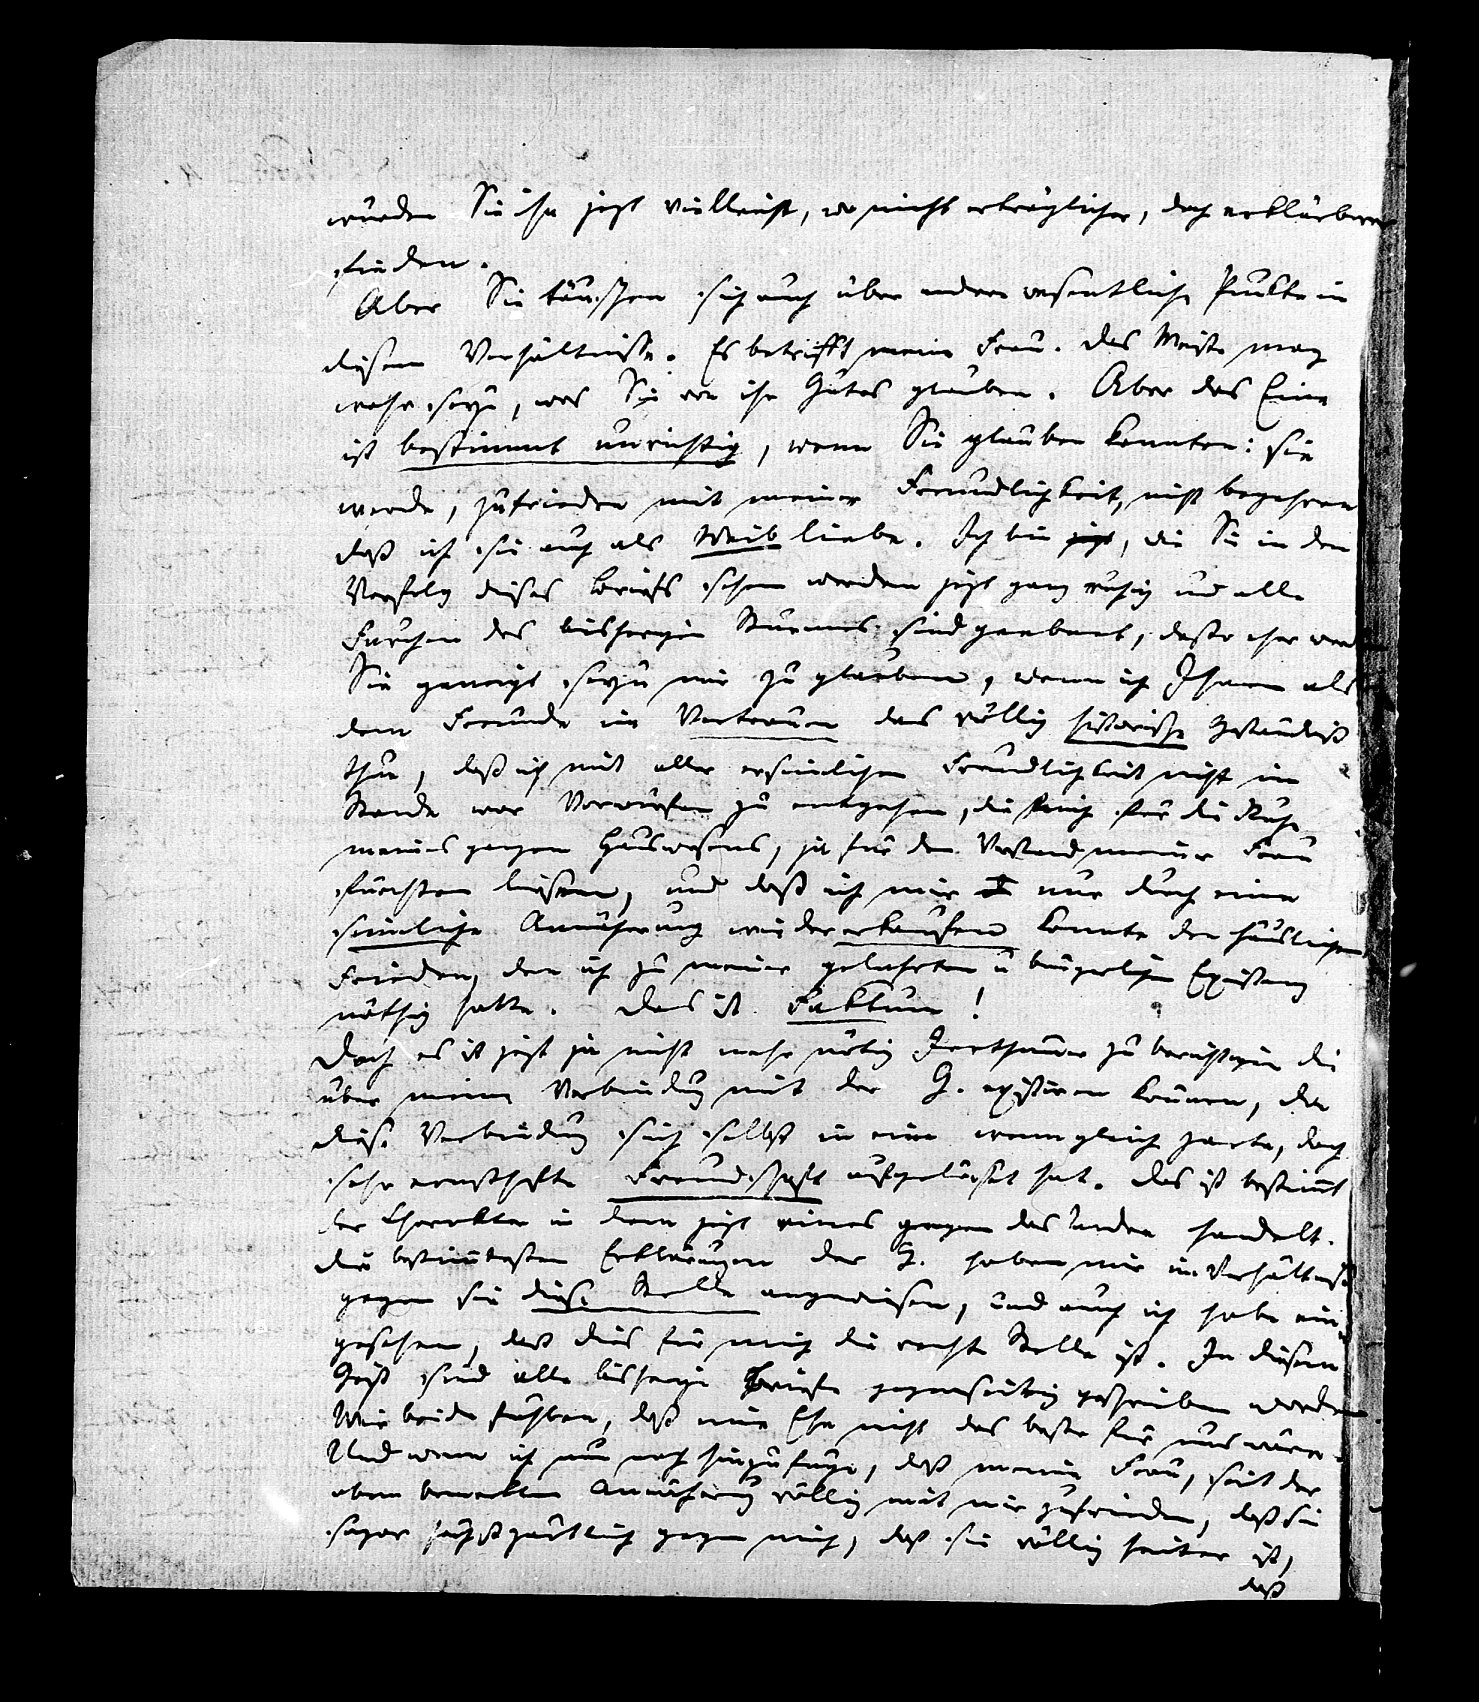 würden Sie ihn jezt vielleicht, wo nicht erträglicher, doch erklärbarer
finden.
Aber Sie täuschen sich auch über andere wesentliche Punkte in
diesem Verhältnisse. Es betrifft meine Frau. Das Meiste mag
wahr seyn, was Sie von ihr Gutes glauben. Aber das Eine
ist bestimmt unrichtig, wenn Sie glauben konnten: sie
werde, zufrieden mit meiner Freundlichkeit, nicht begehren
daß ich sie auch als Weib liebe. Ich bin jezt, wie Sie in dem
Verfolg dieses Briefs sehen werden jezt ganz ruhig und alle
Furchen des bisherigen Sturmes sind geebnet, desto eher werden
Sie geneigt seyn mir zu glauben, wenn ich Ihnen als
dem Freunde im Vertrauen das völlig historische Geständniß
thue, daß ich mit aller ersinnlichen Freundlichkeit nicht im
Stande war Vorwürfen zu entgehen, die mich für die Ruhe
meines ganzen Hauswesens, ja für den Verstand meiner Frau
fürchten liessen, und daß ich mir nur durch eine
sinnliche Annäherung wieder erkaufen konnte den häuslichen
Frieden, den ich zu meiner gelehrten u bürgerlichen Existenz
nöthig hatte. Das ist Faktum!
Doch es ist jezt ja nicht mehr nötig Irrthümer zu berichtigen die
über meine Verbindung mit der G. existiren können, da
diese Verbindung sich selbst in eine wenn gleich zarte, doch
sehr ernsthafte Freundschaft aufgelöset hat. Das ist bestimmt
der Charakter in dem jezt eines gegen das andere handelt.
Die bestimmtesten Erklärungen der G. haben mir im Verhältniß
gegen sie diese Stelle angewiesen, und auch ich habe ein-
gesehen, daß dies für mich die rechte Stelle ist. In diesem
Geist sind alle bisherige Briefe gegenseitig geschrieben worden.
Wir beide fühlten, daß eine Ehe nicht das beste für uns wäre.
Und wenn ich nun noch hinzufüge, daß meine Frau, seit der
oben bemerkten Annäherung völlig mit mir zufrieden, daß sie
sogar höchst zärtlich gegen mich, daß sie völlig heiter ist,
daß